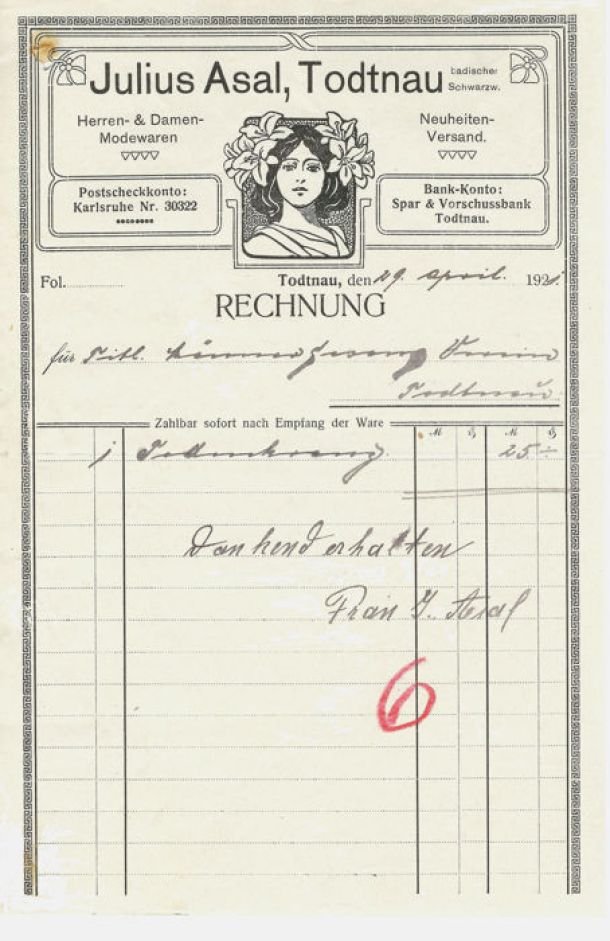 Julius Asal, Todtnau badischer Schwarzw.
Herren- & Damen-
Modewaren
Neuheiten-
Versand.
Postscheckkonto:
Karlsruhe Nr. 30322
Bank-Konto:
Spar & Vorschussbank
Todtnau.
Fol.
Todtnau, den 29. April. 1921.
RECHNUNG
für Titl. Männer Gesang Verein
Todtnau
Zahlbar sofort nach Empfang der Ware
M ₰ M ₰
1 Totenkranz. 25.-
Dankend erhalten
Frau J. Asal
6